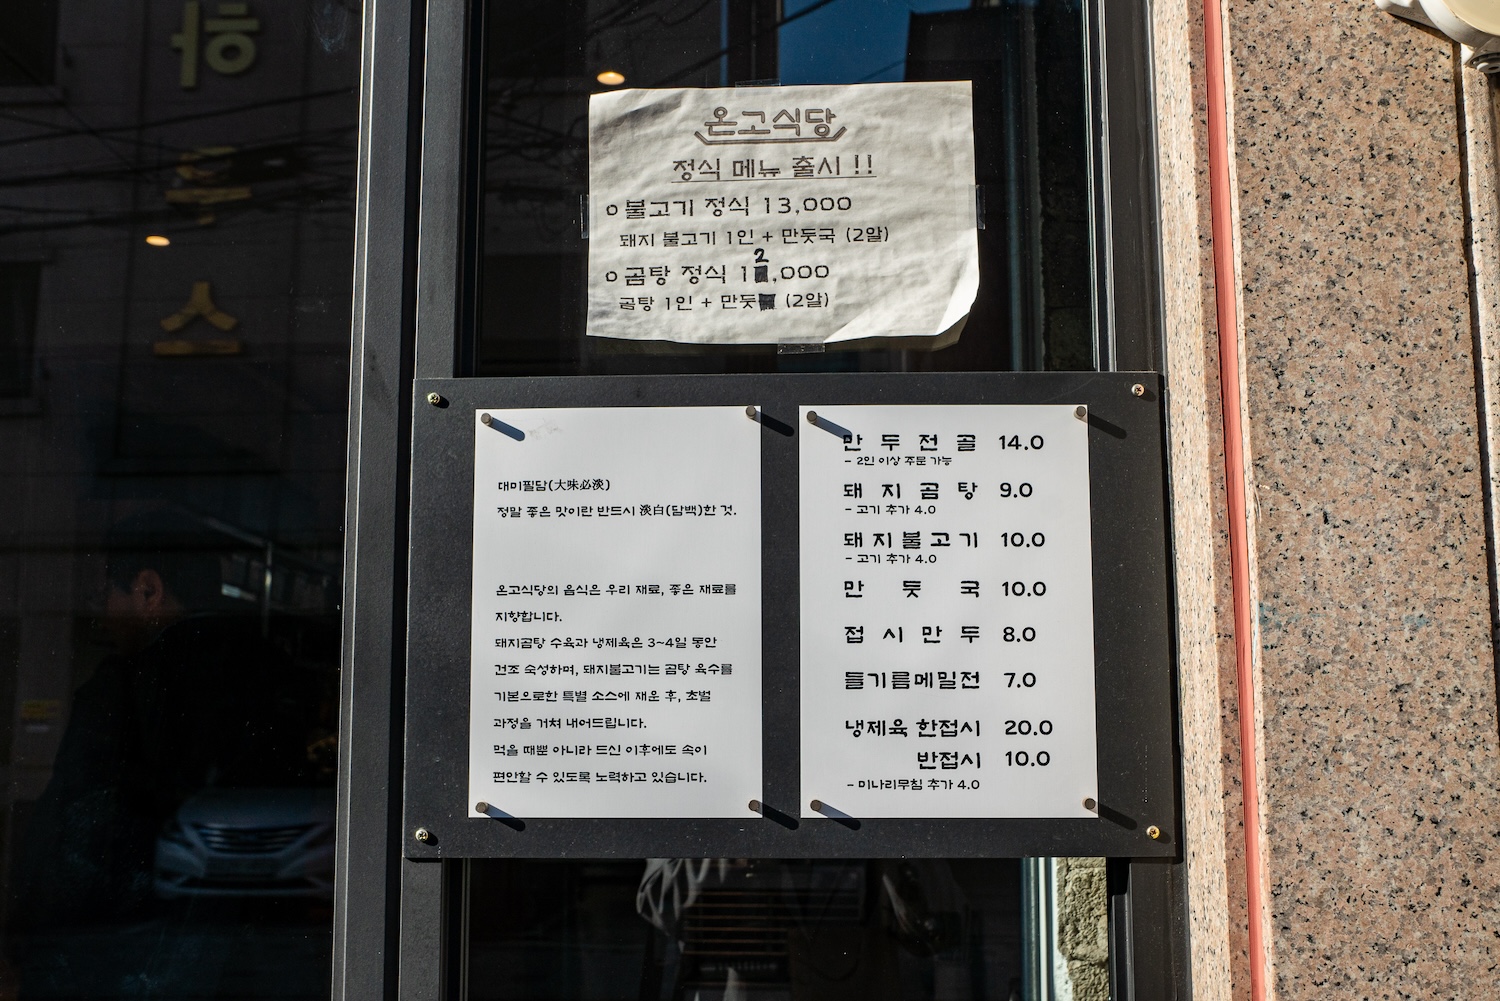 하
우
스
온고식당
정식 메뉴 출시 !!
불고기 정식 13,000
돼지 불고기 1인 + 만둣국 (2알)
2
곰탕 정식 1 ,000
곰탕 1인 + 만둣 (2알)
대미필담(大味必淡)
정말 좋은 맛이란 반드시 淡白(담백)한 것.
온고식당의 음식은 우리 재료, 좋은 재료를
지향합니다.
돼지곰탕 수육과 냉제육은 3~4일 동안
건조 숙성하며, 돼지불고기는 곰탕 육수를
기본으로한 특별 소스에 재운 후, 초벌
과정을 거쳐 내어드립니다.
먹을 때뿐 아니라 드신 이후에도 속이
편안할 수 있도록 노력하고 있습니다.
만두전골 14.0
- 2인 이상 주문 가능
돼지곰탕 9.0
- 고기 추가 4.0
돼지불고기 10.0
- 고기 추가 4.0
만둣국 10.0
접시만두 8.0
들기름메밀전 7.0
냉제육 한접시 20.0
반접시 10.0
- 미나리무침 추가 4.0